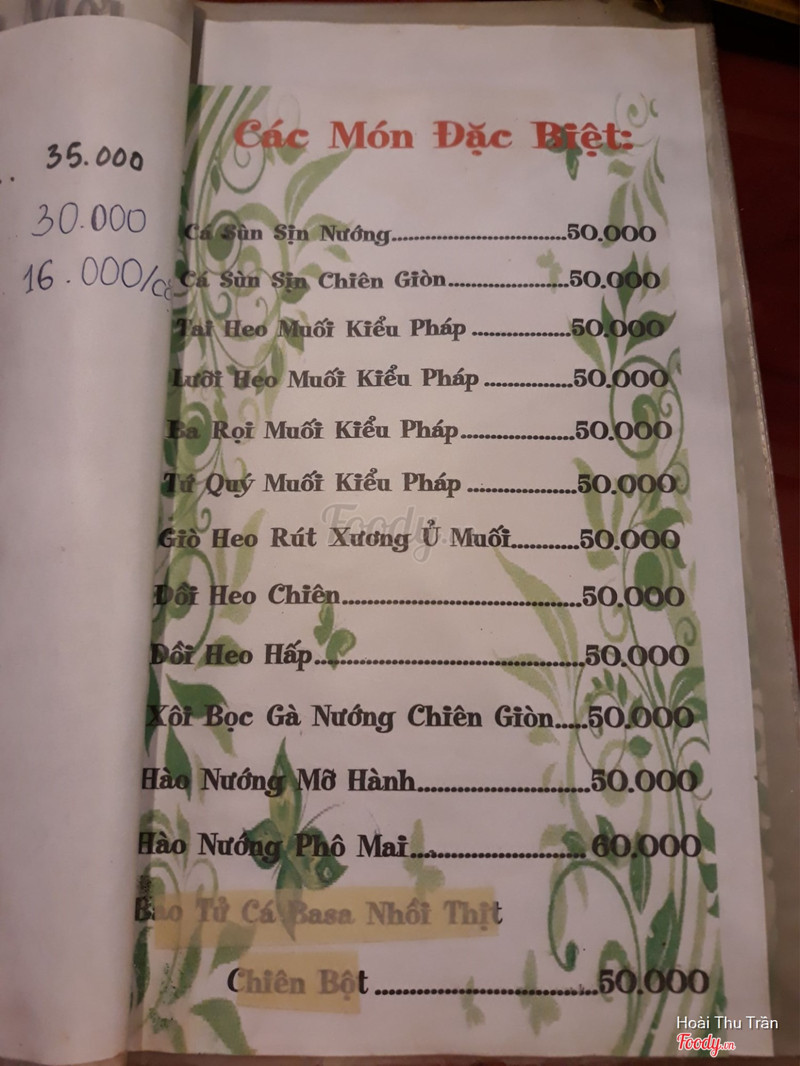 35.000
30.000
16.000/c
Các Món Đặc Biệt:
Cá Sùn Sịn Nướng..............................50.000
Cá Sùn Sịn Chiên Giòn....................50.000
Tai Heo Muối Kiểu Pháp.................50.000
Lưỡi Heo Muối Kiểu Pháp...............50.000
Ba Rọi Muối Kiểu Pháp....................50.000
Tứ Quý Muối Kiểu Pháp...................50.000
Giò Heo Rút Xương Ủ Muối............50.000
Dồi Heo Chiên.......................................50.000
Dồi Heo Hấp............................................50.000
Xôi Bọc Gà Nướng Chiên Giòn.....50.000
Hào Nướng Mỡ Hành............................50.000
Hào Nướng Phô Mai............................60.000
Bao Tử Cá Basa Nhồi Thịt
Chiên Bột....................................50.000
Foody.vn
Hoài Thu Trần
Foody.vn